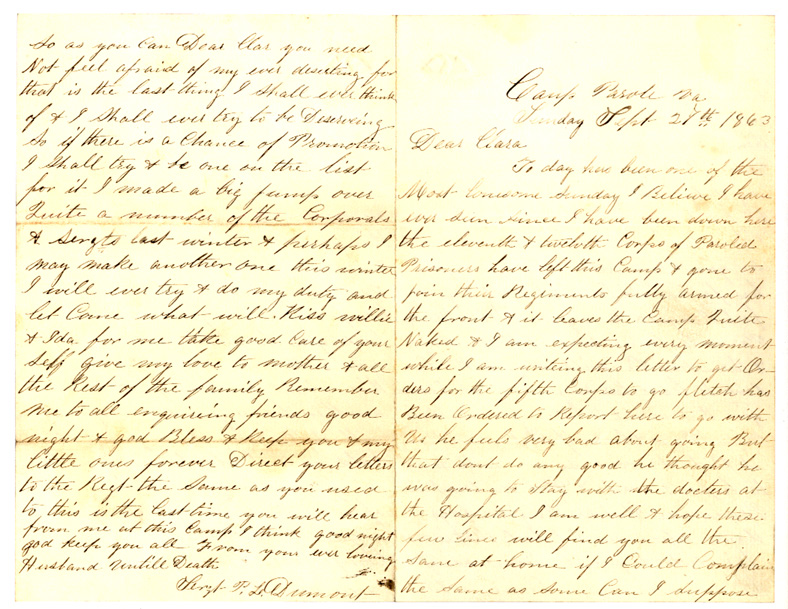 Camp Parole Va
Sunday Sept 27th 1863
Dear Clara
To day has been one of the
Most lonesome Sunday I Believe I have
ever seen since I have been down here
the eleventh & twelvth Corps of Paroled
Prisoners have left this Camp & gone to
join their Regiments fully armed for
the front & it leaves the Camp Quite
Naked & I am expecting every moment
while I am writing this letter to get Or-
ders for the fifth Corps to go flitch has
Been Ordered to Report here to go with
Us he feels very bad about going But
that dont do any good he thought he
was going to stay with the docters at
the Hospital I am well & hope these
few lines will find you all the
Same at home if I Could Complain
the Same as Some Can I suppose
So as you Can Dear Clar you need
Not feel afraid of my ever deserting for
that is the last thing I shall ever think
of & I shall ever try to be Deserving
So if there is a Chance of Promotion
I shall try & be one on the list
for it I made a big jump over
Quite a number of the Corporals
& Sergts last winter & perhaps I
may make another one this winter
I will ever try & do my duty and
let Come what will. Kiss willie
& Ida for me take good Care of your
self give my love to mother & all
the Rest of the family Remember
me to all enquiring friends good
night & god Bless & Keep you & my
little ones forever Direct your letters
to the Regt the Same as you used
to this is the last time you will hear
from me at this Camp I think good night
god keep you all From your ever loveing
Husband Untill Death
Sergt P. L. Dumont